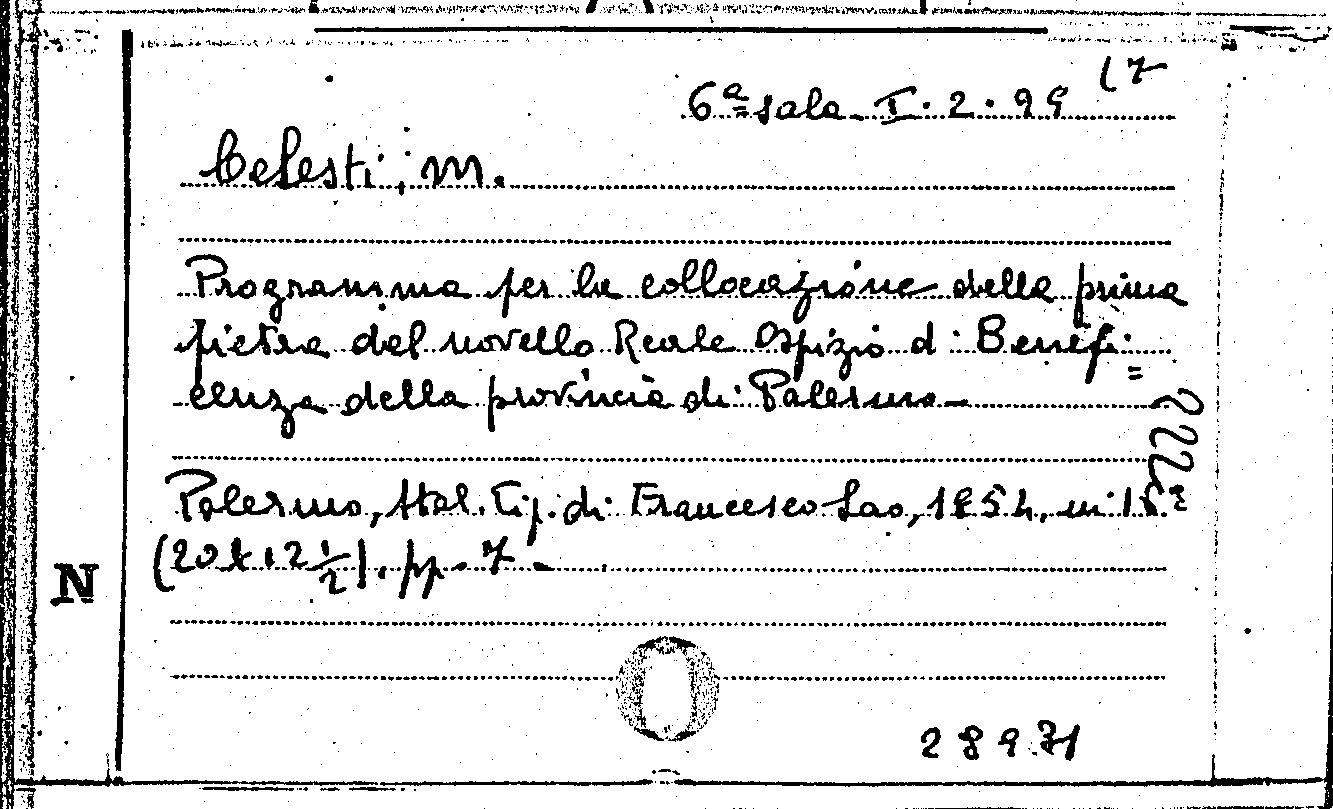 6ª sala - I. 2. 99 (7
Celesti, M.
Programma per la collocazione della prima
pietra del novello Reale Ospizio di Benefi=
cenza della provincia di Palermo -
222
Palermo, Stal. Tip. di Francesco Lao, 1854, in 16º
(20 x 12 1/2), pp. 7 -
N
28971